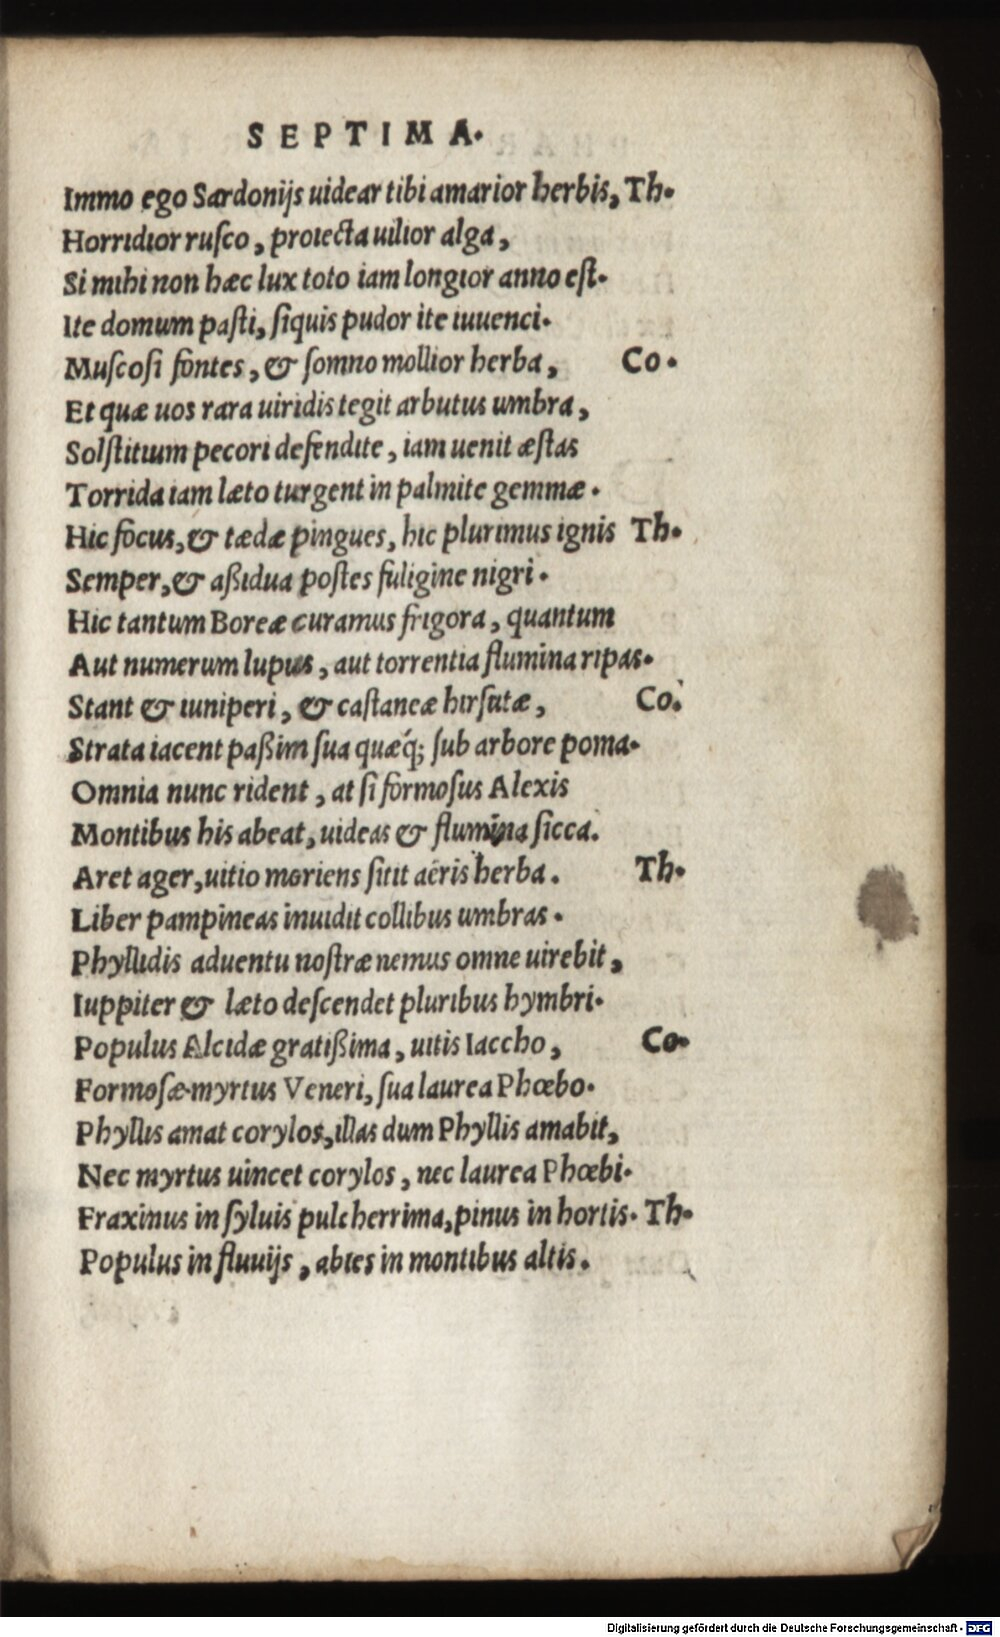 SEPTIMA.
Immo ego Sardonijs uidear tibi amarior herbis, Th.
Horridior rusco, proiecta uilior alga,
Si mihi non hæc lux toto iam longior anno est.
Ite domum pasti, siquis pudor ite iuuenci.
Muscosi fontes, & somno mollior herba, Co.
Et quæ uos rara uiridis tegit arbutus umbra,
Solstitium pecori defendite, iam uenit æstas
Torrida iam læto turgent in palmite gemmæ.
Hic focus, & tædæ pingues, hic plurimus ignis Th.
Semper, & aßidua postes fuligine nigri.
Hic tantum Boreæ curamus frigora, quantum
Aut numerum lupus, aut torrentia flumina ripas.
Stant & iuniperi, & castaneæ hirsutæ, Co.
Strata iacent paßim sua quæq́; sub arbore poma.
Omnia nunc rident, at si formosus Alexis
Montibus his abeat, uideas & flumina sicca.
Aret ager, uitio moriens sitit aëris herba. Th.
Liber pampineas inuidit collibus umbras.
Phyllidis aduentu nostræ nemus omne uirebit,
Iuppiter & læto descendet pluribus hymbri.
Populus Alcidæ gratißima, uitis Iaccho, Co.
Formosæ myrtus Veneri, sua laurea Phœbo.
Phyllis amat corylos, illas dum Phyllis amabit,
Nec myrtus uincet corylos, nec laurea Phœbi.
Fraxinus in syluis pulcherrima, pinus in hortis. Th.
Populus in fluuijs, abies in montibus altis.
Digitalisierung gefördert durch die Deutsche Forschungsgemeinschaft - DFG